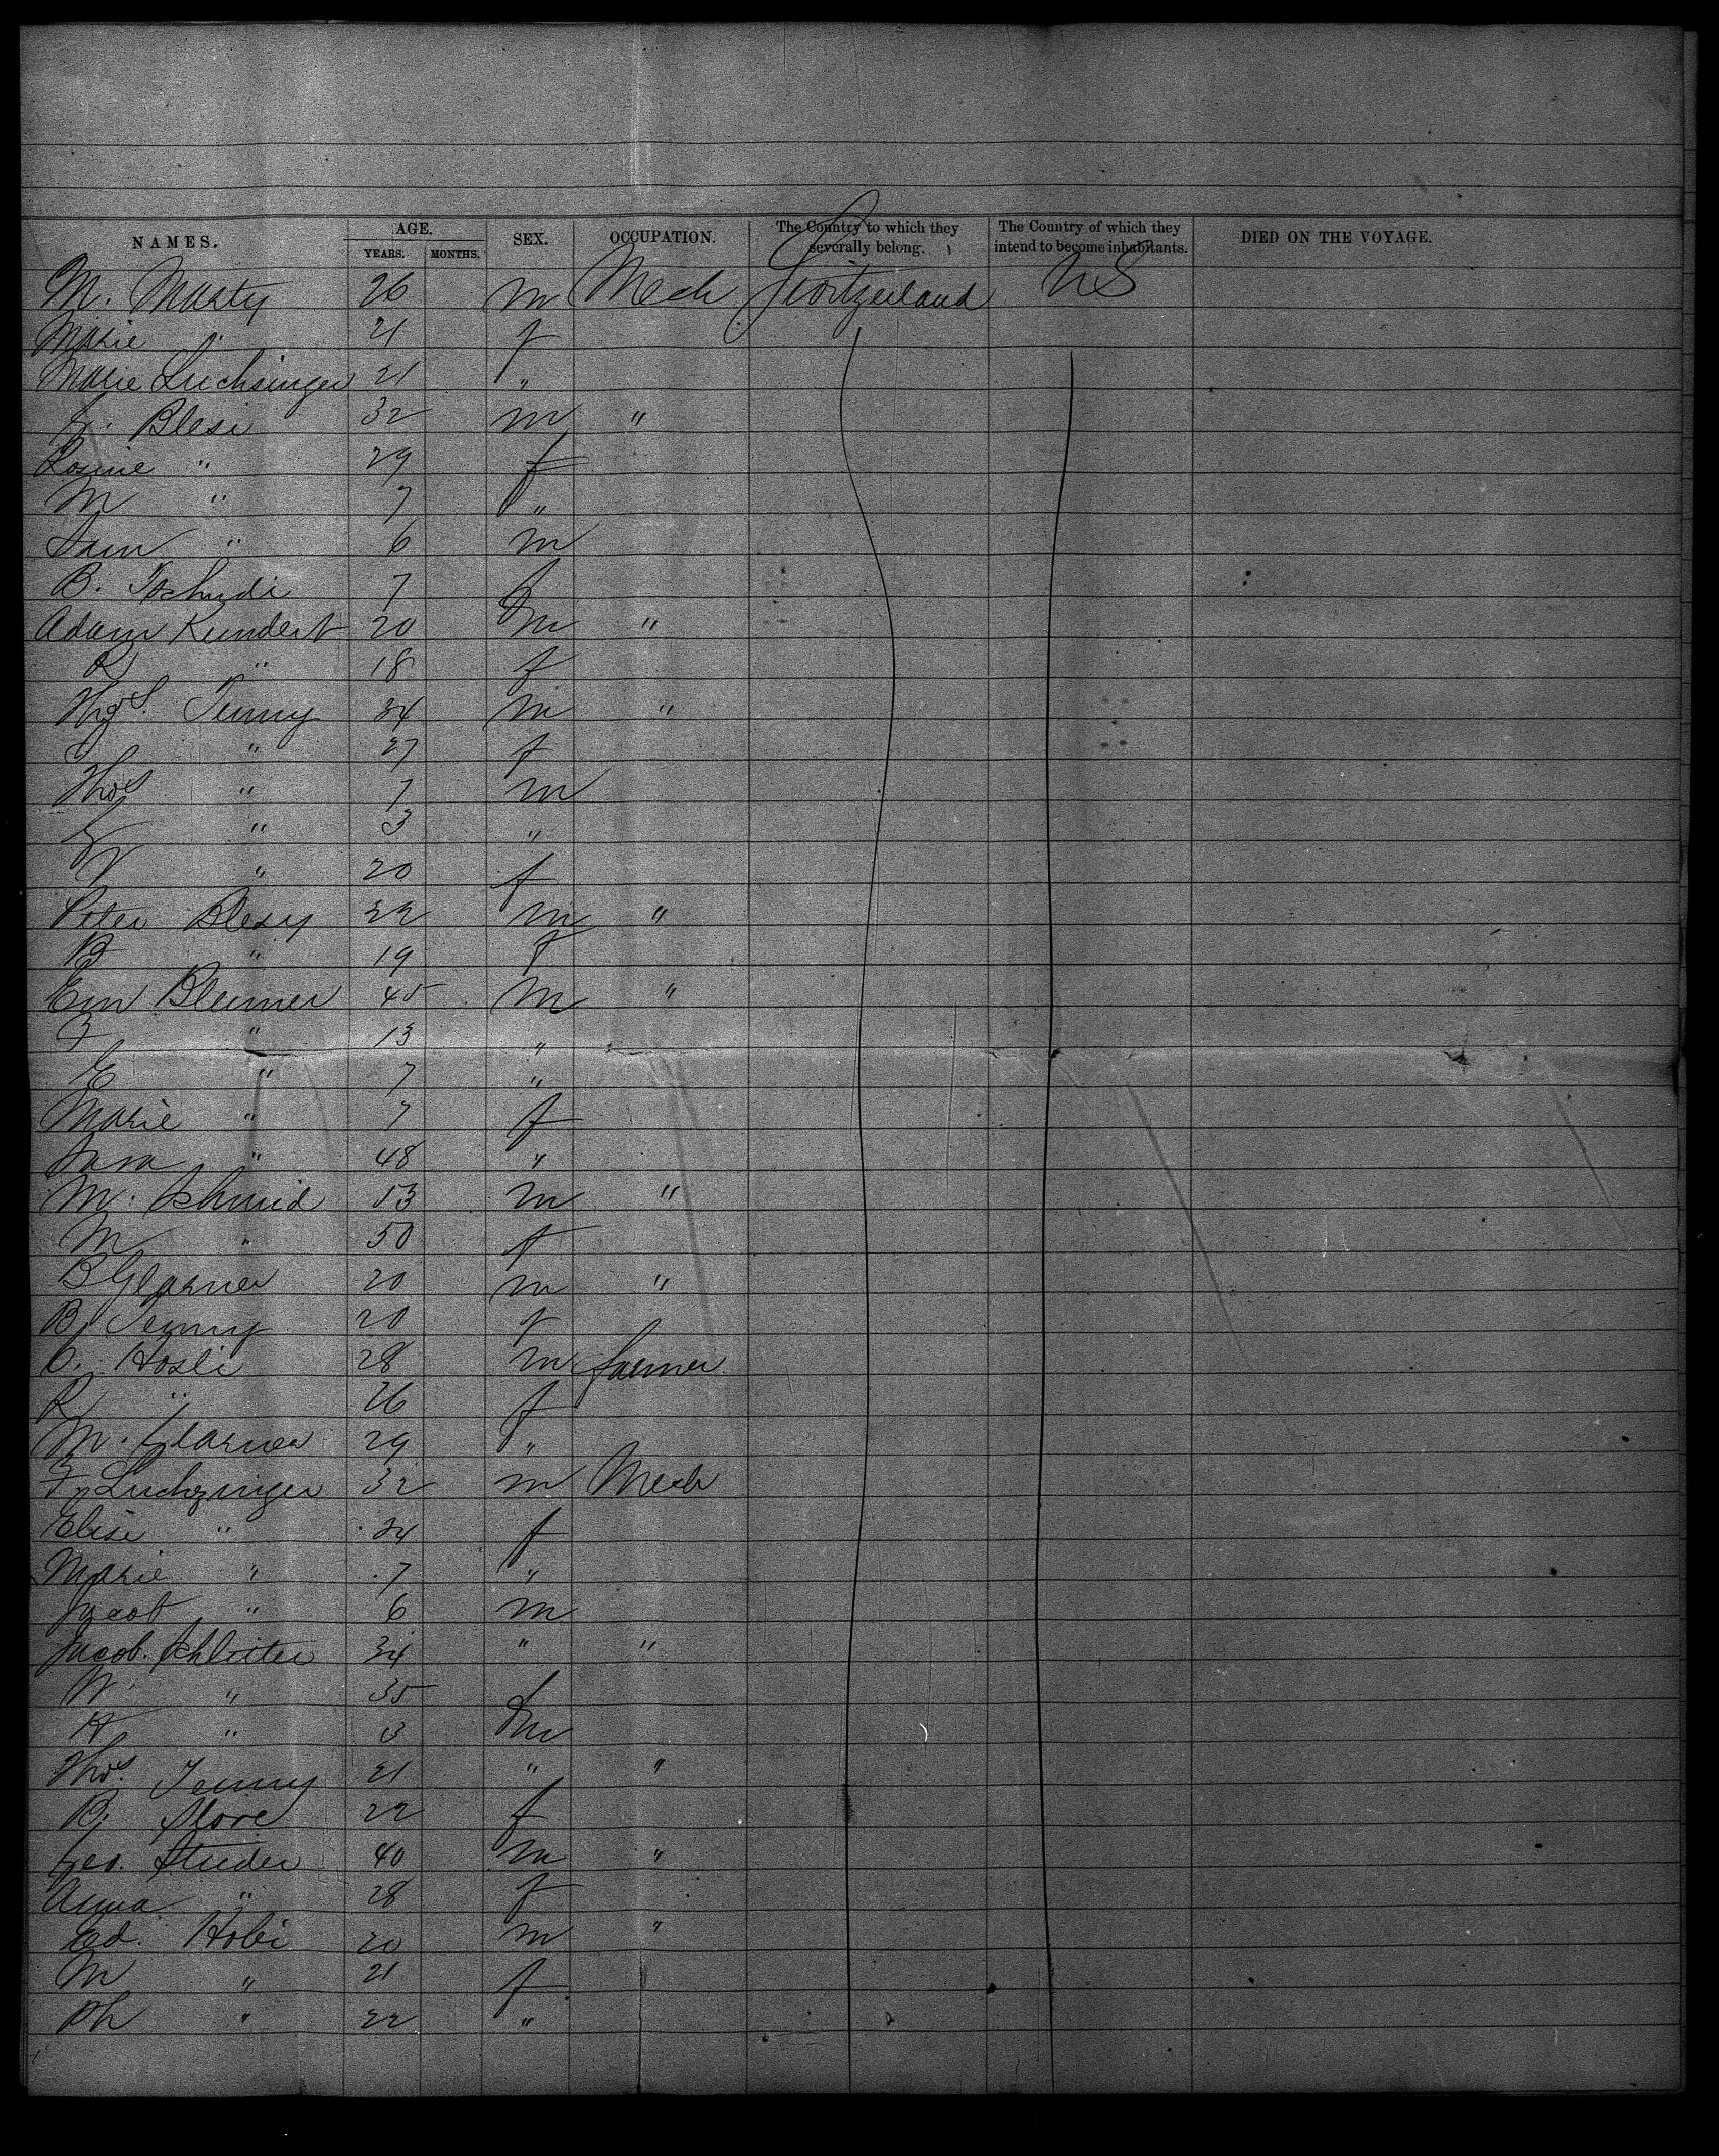 NAMES. AGE. YEARS. MONTHS. SEX. OCCUPATION. The Country to which they severally belong. The Country of which they intend to become inhabitants. DIED ON THE VOYAGE.
M. Marty 26 m Mech Switzerland US
Marie " 21 f
Marie Luchsinger 21 "
Blesi 32 m "
Rosine " 29 f
M " 7 "
Sam " 6 m
B. Tschudi 7 f
Adam Kundert 20 m "
R " 18 f
Thos. Jenny 34 m "
" 27 f
Thos " 7 m
" 3 "
" 20 f
Peter Blesy 22 m "
B " 19 f
Em Blumer 45 m "
F " 13 "
E " 7 "
Marie " 7 f
Sara " 48 "
M. Schmid 53 m "
M " 50 f
B Glarner 20 m "
B. Jenny 20 f
Hosli 28 m farmer
R " 26 f
M. Glarner 29 "
F. Luchzinger 32 m Mech
Elise " 34 f
Marie " 7 "
Jacob " 6 m
Jacob. Schlitter 34 " "
W " 35 f
H " 3 m
Thos. Jenny 21 " "
B. 22 f
Geo. Studer 40 m "
Anna " 28 f
Ed. Hobi 20 m "
M " 21 f
Ph " 22 "